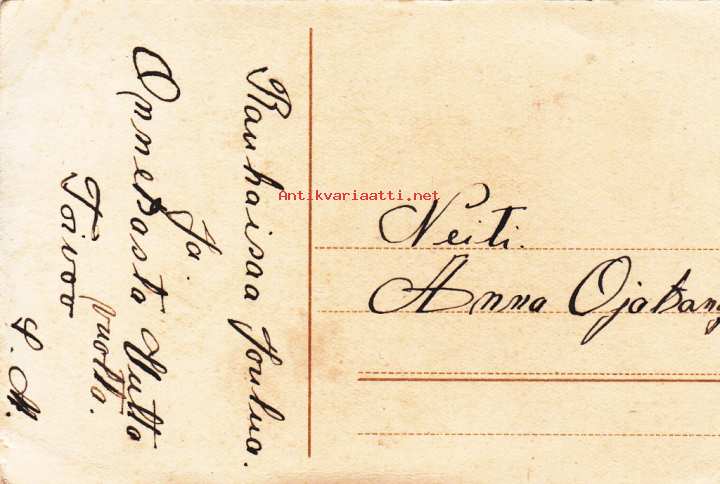 Rauhaisaa Joulua.
ja
Onnekasta Uutta
vuotta.
Toivoo
L. M.
Antikvariaatti.net
Neiti.
Anna Ojakang